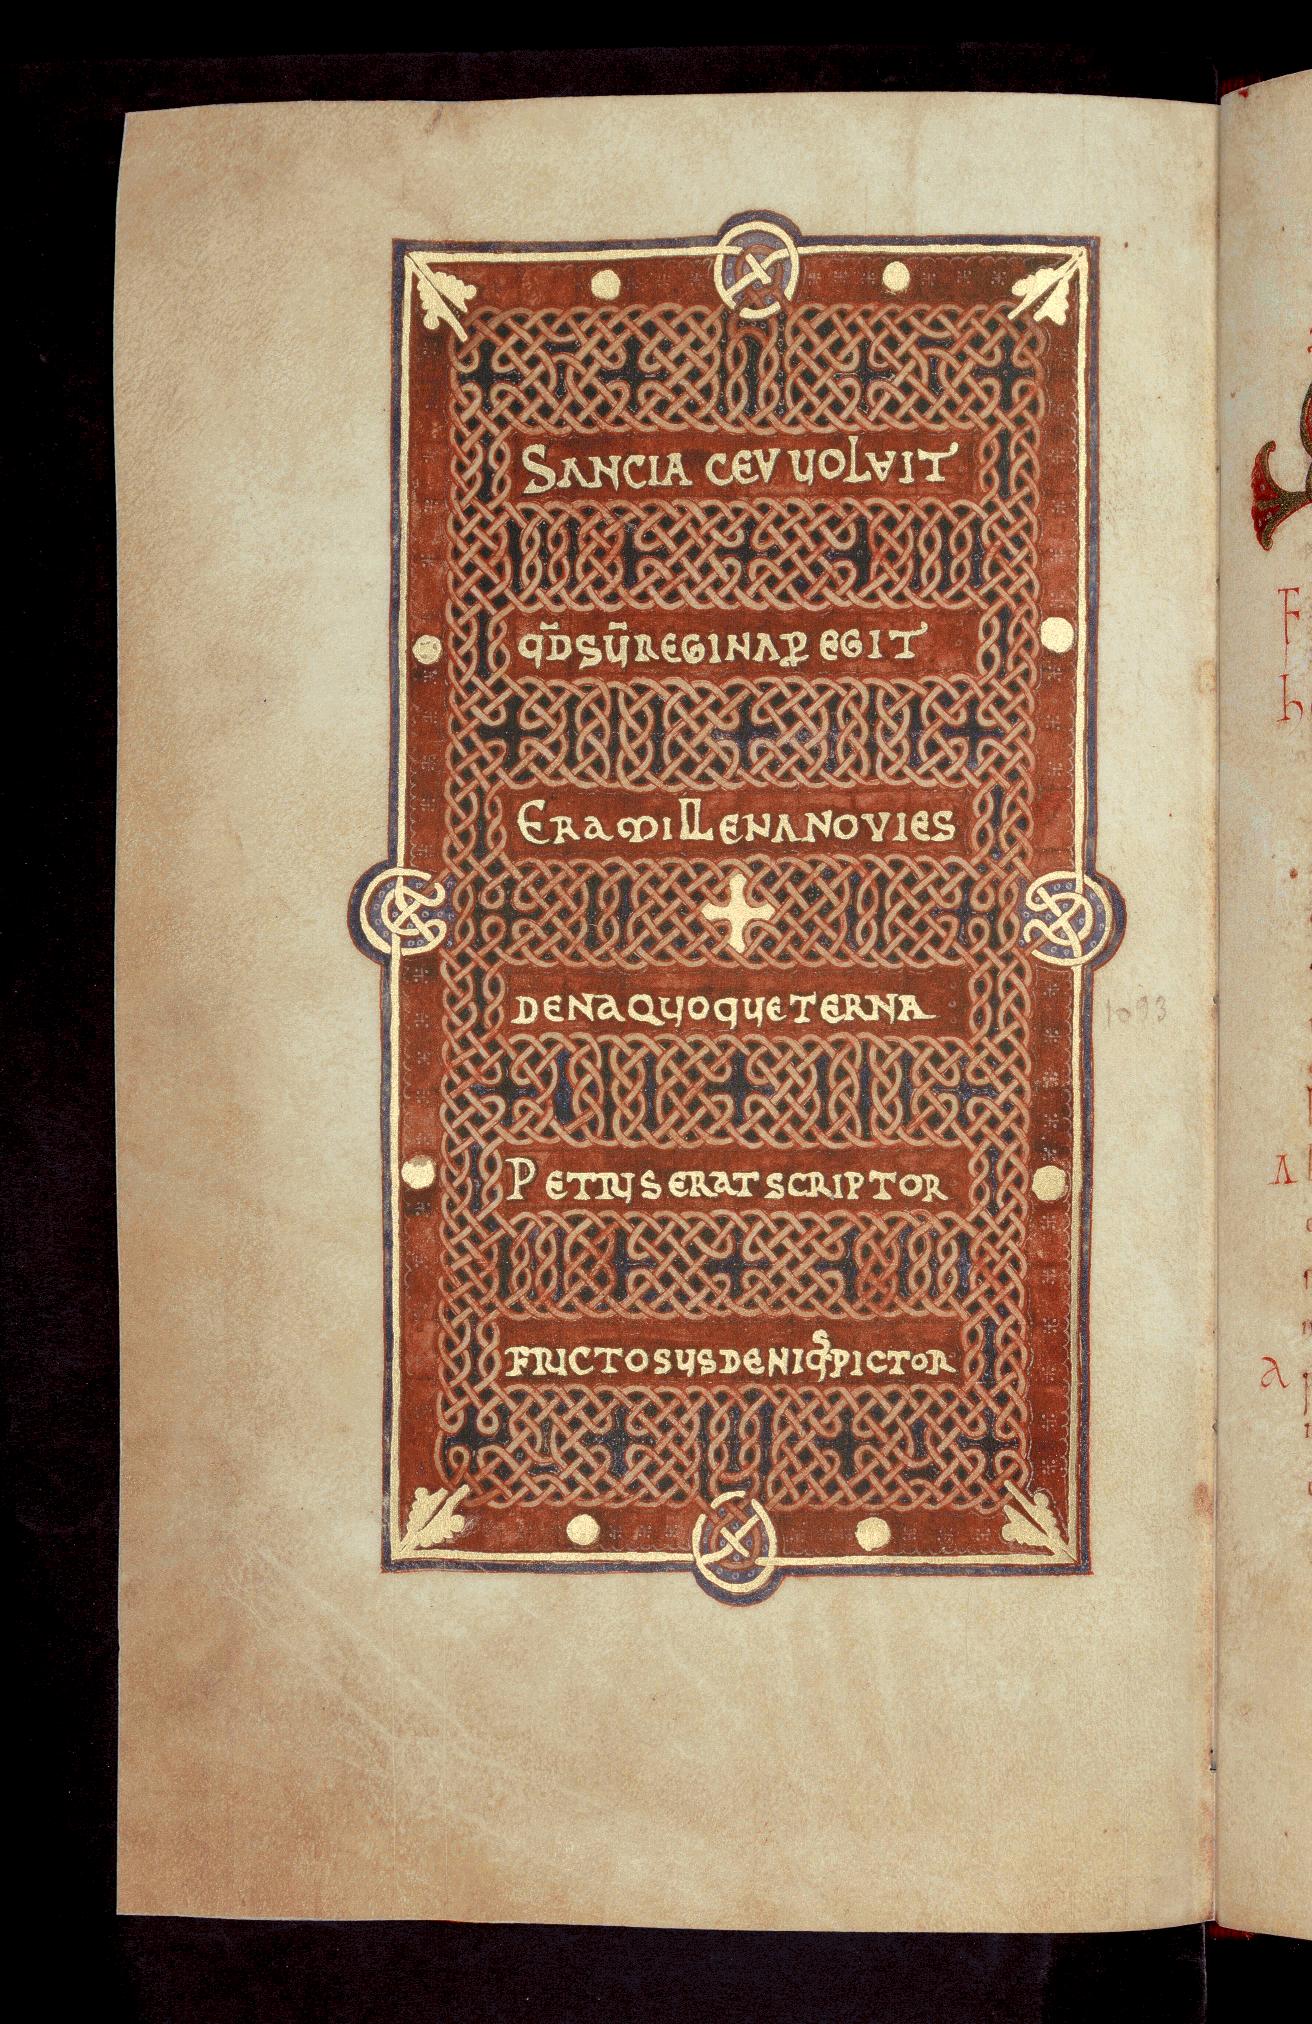 SANCIA CEV VOLVIT
qD̄ SŪ REGINA P̱ EGIT
ERA MILLENA NOVIES
DENA QUOQUE TERNA
1093
PETRUS ERAT SCRIPTOR
FRUCTOSUS DENIqˢ PICTOR